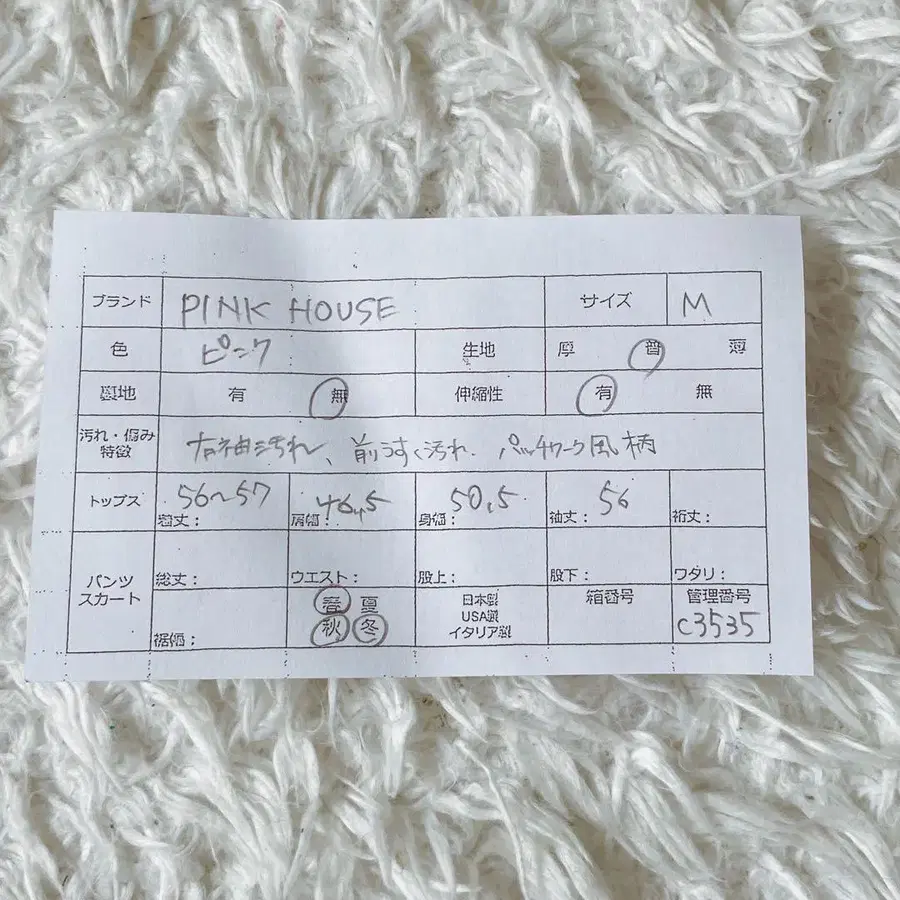 ブランド PINK HOUSE サイズ M
色 ピンク 生地 厚 普 薄
裏地 有 無 伸縮性 有 無
汚れ・傷み 特徴 右袖汚れ、前うすく汚れ. パッチワーク風柄
トップス 着丈: 56〜57 肩幅: 46.5 身幅: 50.5 袖丈: 56 裄丈:
パンツ スカート 総丈: ウエスト: 股上: 股下: ワタリ:
裾幅: 春 夏 秋 冬 日本製 USA製 イタリア製 箱番号 管理番号 C3535